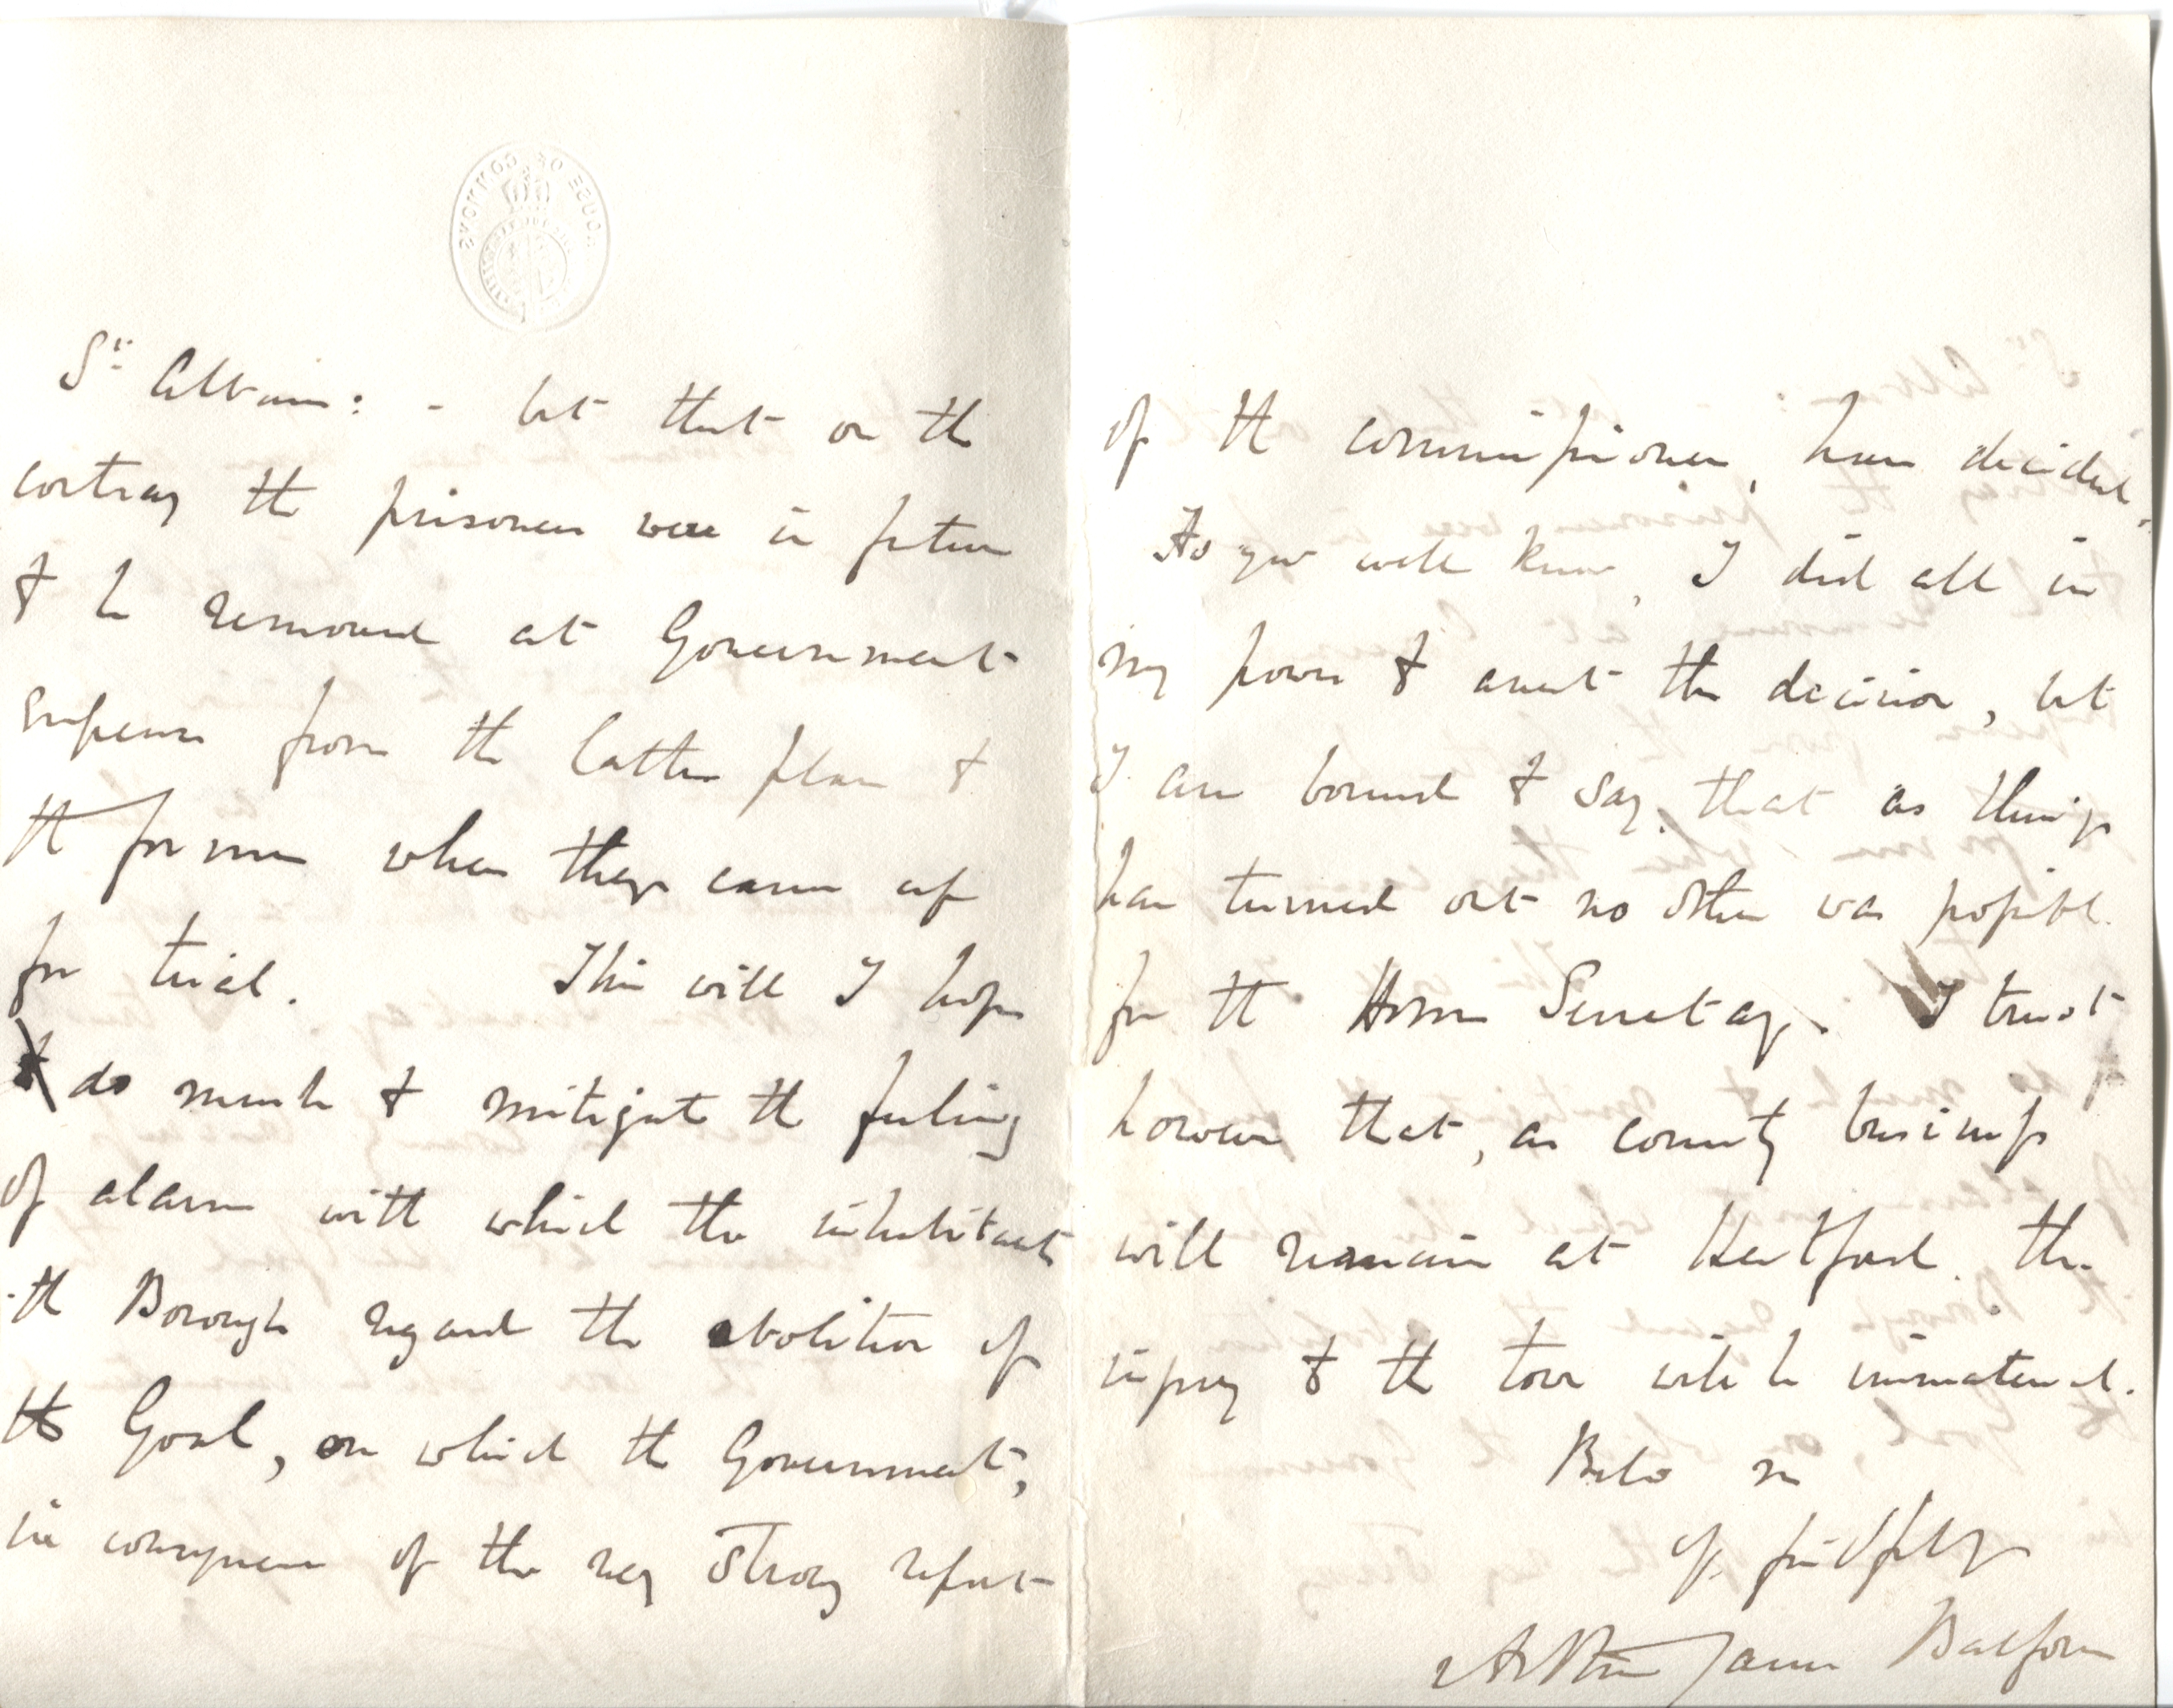 HOUSE OF COMMONS
St. Albans: - but that on the
contrary the prisoners were in future
to be removed at Government
expense from the latter place to
the former when they came up
for trial. This will I hope
do much to mitigate the feeling
of alarm with which the inhabitants
the Borough regard the abolition of
the Goal, on which the Government,
in consequence of the very strong report
of the commissioners, have decided.
As you well know, I did all in
my power to avert the decision, but
I am bound to say, that as things
have turned out no other was possible
for the Home Secretary. I trust
however that, as county business
will remain at Hertford, the
injury to the town will be immaterial.
Believe me
Yrs faithfully
Arthur James Balfour